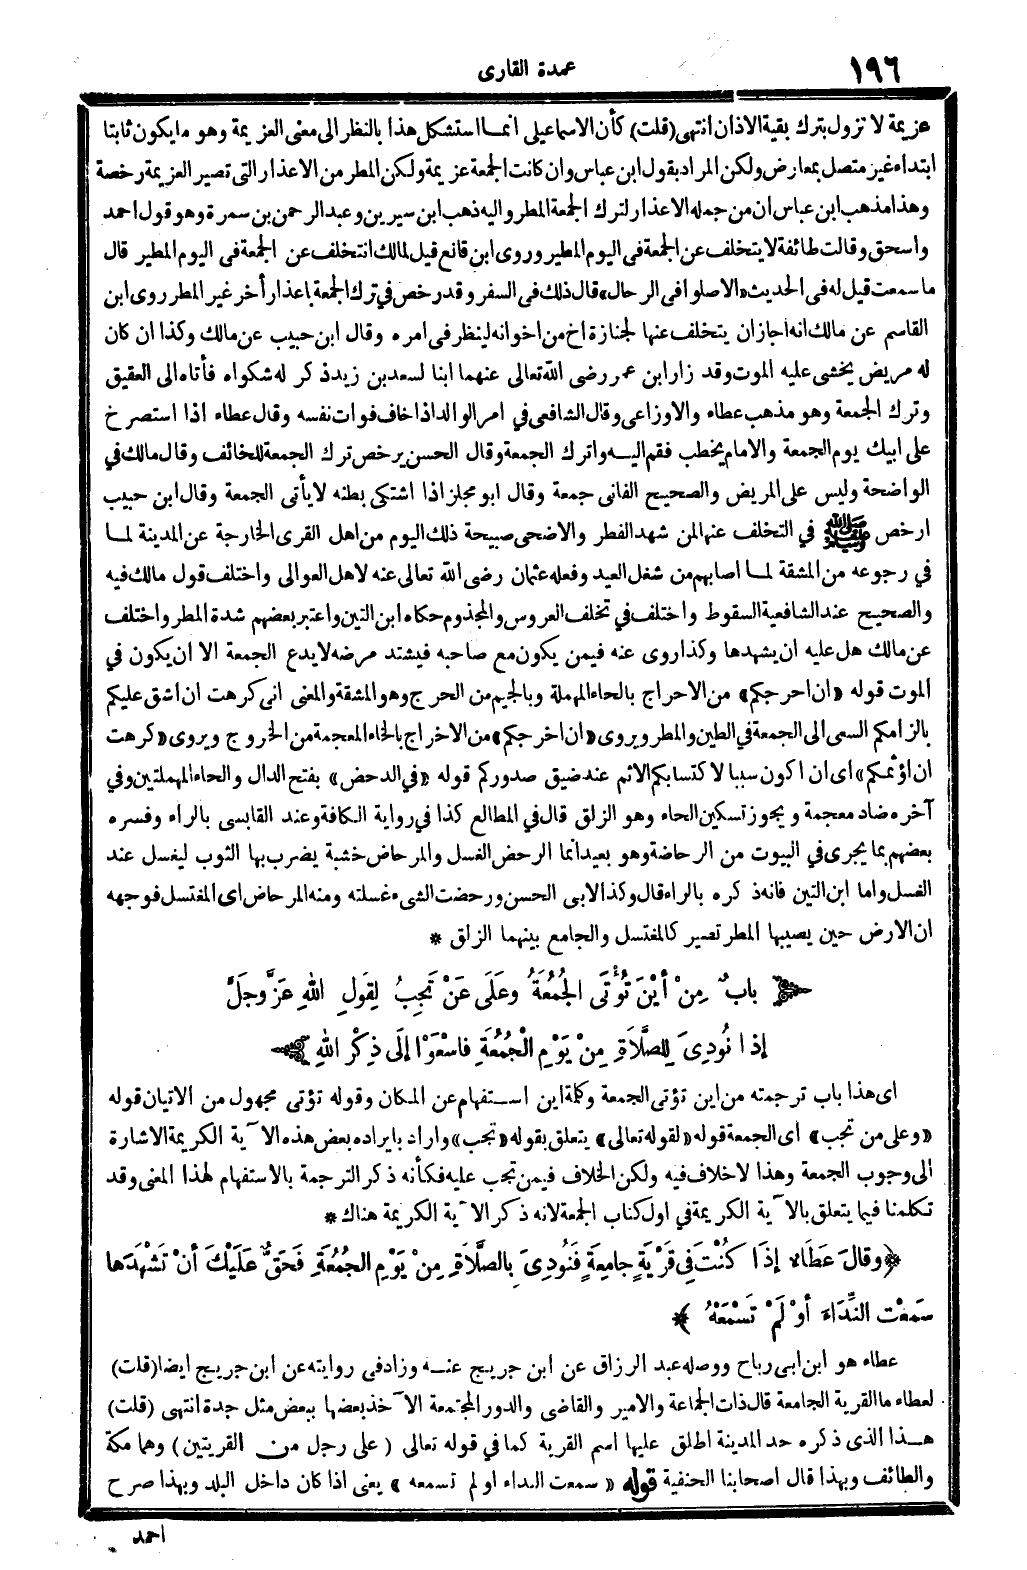 ١٩٦
عمدة القارى
عزيمة لا تزول بترك بقية الاذان انتهى (قلت) كأن الاسماعيلى انما استشكل هذا بالنظر الى معنى العزيمة وهو ما يكون ثابتا
ابتداء غير متصل بمعارض ولكن المراد بقول ابن عباس وان كانت الجمعة عزيمة ولكن المطر من الاعذار التى تصير العزيمة رخصة
وهذا مذهب ابن عباس ان من جملة الاعذار لترك الجمعة المطر واليه ذهب ابن سيرين وعبد الرحمن بن سمرة وهو قول احمد
واسحق وقالت طائفة لا يتخلف عن الجمعة فى اليوم المطير وروى ابن قانع قيل لمالك انتخلف عن الجمعة فى اليوم المطير قال
ما سمعت قيل له فى الحديث «الا صلوا فى الرحال» قال ذلك فى السفر وقد رخص فى ترك الجمعة باعذار أخر غير المطر روى ابن
القاسم عن مالك انه اجاز ان يتخلف عنها لجنازة اخ من اخوانه لينظر فى امره وقال ابن حبيب عن مالك وكذا ان كان
له مريض يخشى عليه الموت وقد زار ابن عمر رضى الله تعالى عنهما ابنا لسعد بن زيد ذكر له شكواه فأتاه الى العقيق
وترك الجمعة وهو مذهب عطاء والاوزاعى وقال الشافعى فى امر الوالد اذا خاف فوات نفسه وقال عطاء اذا استصرخ
على ابيك يوم الجمعة والامام يخطب فقم اليه واترك الجمعة وقال الحسن يرخص ترك الجمعة للخائف وقال مالك فى
الواضحة وليس على المريض والصحيح الفانى جمعة وقال ابو مجلز اذا اشتكى بطنه لا يأتى الجمعة وقال ابن حبيب
ارخص ﷺ فى التخلف عنها لمن شهد الفطر والاضحى صبيحة ذلك اليوم من اهل القرى الخارجة عن المدينة لما
فى رجوعه من المشقة لما اصابهم من شغل العيد وفعله عثمان رضى الله تعالى عنه لاهل العوالى واختلف قول مالك فيه
والصحيح عند الشافعية السقوط واختلف فى تخلف العروس والمجذوم حكاه ابن التين واعتبر بعضهم شدة المطر واختلف
عن مالك هل عليه ان يشهدها وكذا روى عنه فيمن يكون مع صاحبه فيشتد مرضه لا يدع الجمعة الا ان يكون فى
الموت قوله «ان احرجكم» من الاحراج بالحاء المهملة وبالجيم من الحرج وهو المشقة والمعنى انى كرهت ان اشق عليكم
بالزامكم السعى الى الجمعة فى الطين والمطر ويروى «ان اخرجكم» من الاخراج بالخاء المعجمة من الخروج ويروى «كرهت
ان اؤثمكم» اى ان اكون سببا لاكتسابكم الاثم عند ضيق صدوركم قوله «فى الدحض» بفتح الدال والحاء المهملتين وفى
آخره ضاد معجمة ويجوز تسكين الحاء وهو الزلق قال فى المطالع كذا فى رواية الكافة وعند القابسى بالراء وفسره
بعضهم بما يجرى فى البيوت من الرحاضة وهو بعيد انما الرحض الغسل والمرحاض خشبة يضرب بها الثوب ليغسل عند
الغسل واما ابن التين فانه ذكره بالراء قال وكذا لابى الحسن ورحضت الشىء غسلته ومنه المرحاض اى المغتسل فوجهه
ان الارض حين يصيبها المطر تصير كالمغتسل والجامع بينهما الزلق *
بابٌ مِنْ أَيْنَ تُؤْتَى الجُمُعَةُ وعَلَى مَنْ تَجِبُ لِقَولِ اللهِ عَزَّ وجَلَّ
إذا نُودِىَ لِلصَّلَاةِ مِنْ يَوْمِ الْجُمُعَةِ فاسْعَوْا إلَى ذِكْرِ اللهِ
اى هذا باب ترجمته من اين تؤتى الجمعة وكلمة اين استفهام عن المكان وقوله تؤتى مجهول من الاتيان قوله
«وعلى من تجب» أى الجمعة قوله «لقوله تعالى» يتعلق بقوله «تجب» واراد بايراده بعض هذه الآية الكريمة الاشارة
الى وجوب الجمعة وهذا لا خلاف فيه ولكن الخلاف فيمن تجب عليه فكأنه ذكر الترجمة بالاستفهام لهذا المعنى وقد
تكلمنا فيما يتعلق بالآية الكريمة فى اول كتاب الجمعة لانه ذكر الآية الكريمة هناك *
﴿ وقالَ عَطَاءٌ إذَا كُنْتَ فى قَرْيَةٍ جامِعَةٍ فَنُودِىَ بِالصَّلَاةِ مِنْ يَوْمِ الجُمُعَةِ فَحَقٌّ عَلَيْكَ أنْ تَشْهَدَها
سَمِعْتَ النِّدَاءَ أوْ لَمْ تَسْمَعْهُ ﴾ *
عطاء هو ابن ابى رباح ووصله عبد الرزاق عن ابن جريج عنه وزاد فى روايته عن ابن جريج ايضا (قلت)
لعطاء ما القرية الجامعة قال ذات الجماعة والامير والقاضى والدور المجتمعة الآخذ بعضها ببعض مثل جدة انتهى (قلت)
هذا الذى ذكره حد المدينة اطلق عليها اسم القرية كما فى قوله تعالى (على رجل من القريتين) وهما مكة
والطائف وبهذا قال اصحابنا الحنفية قوله «سمعت النداء او لم تسمعه» يعنى اذا كان داخل البلد وبهذا صرح
احمد